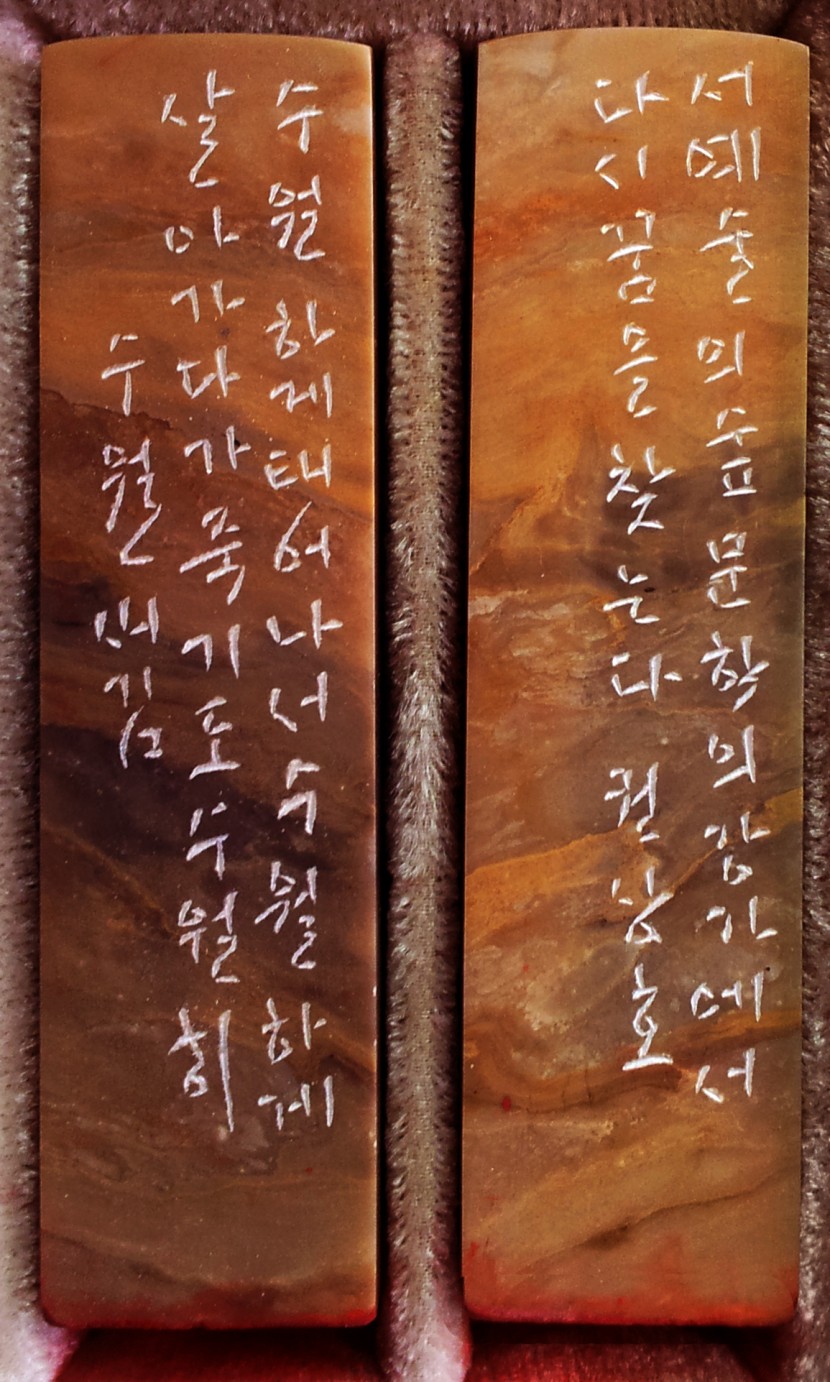 서예술의 숲 문학의 강가에서
다시 꿈을 찾는다 권상호
수월하게 태어나서 수월하게
살아가다가 죽기도 수월히
수월 새김